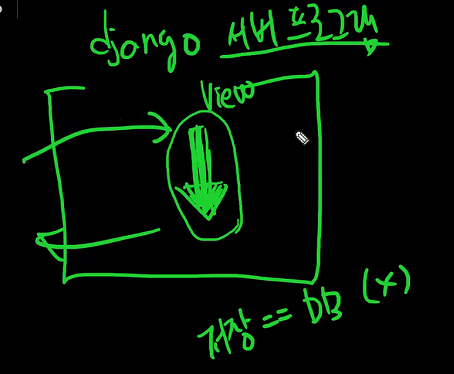 django 새 프로그램
View
저장 == DB (x)